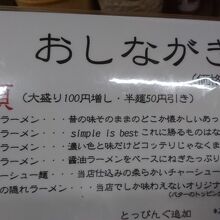 おしながき
(大盛り100円増し・半麺50円引き)
ラーメン・・・昔の味そのままのどこか懐かしいあっ
ラーメン・・・simple is best これに勝るものはな
ラーメン・・・濃い色と味だけどコッテリじゃなくま
ラーメン・・・醤油ラーメンをベースにねぎたっぷり
ーシュー麺・・・当店仕込みの柔らかいチャーシュー
の隠れラーメン・・・当店でしか味わえないオリジナ
とっぴんぐ追加